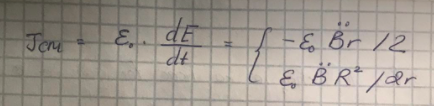 Jсм = ε₀ · dE/dt = { -ε₀ B̈r /2
ε₀ B̈R² /2r